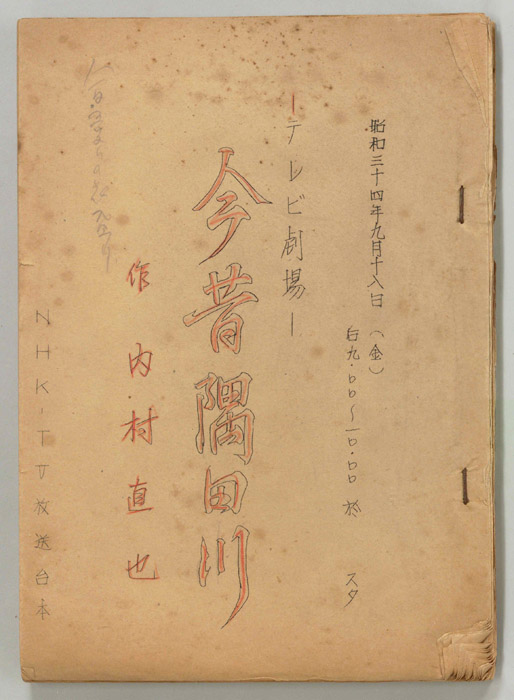 昭和三十四年九月十八日(金)
后九.00〜一0.00 於 スタ
ーテレビ劇場ー
今昔隅田川
作 内村直也
NHK-TV放送台本